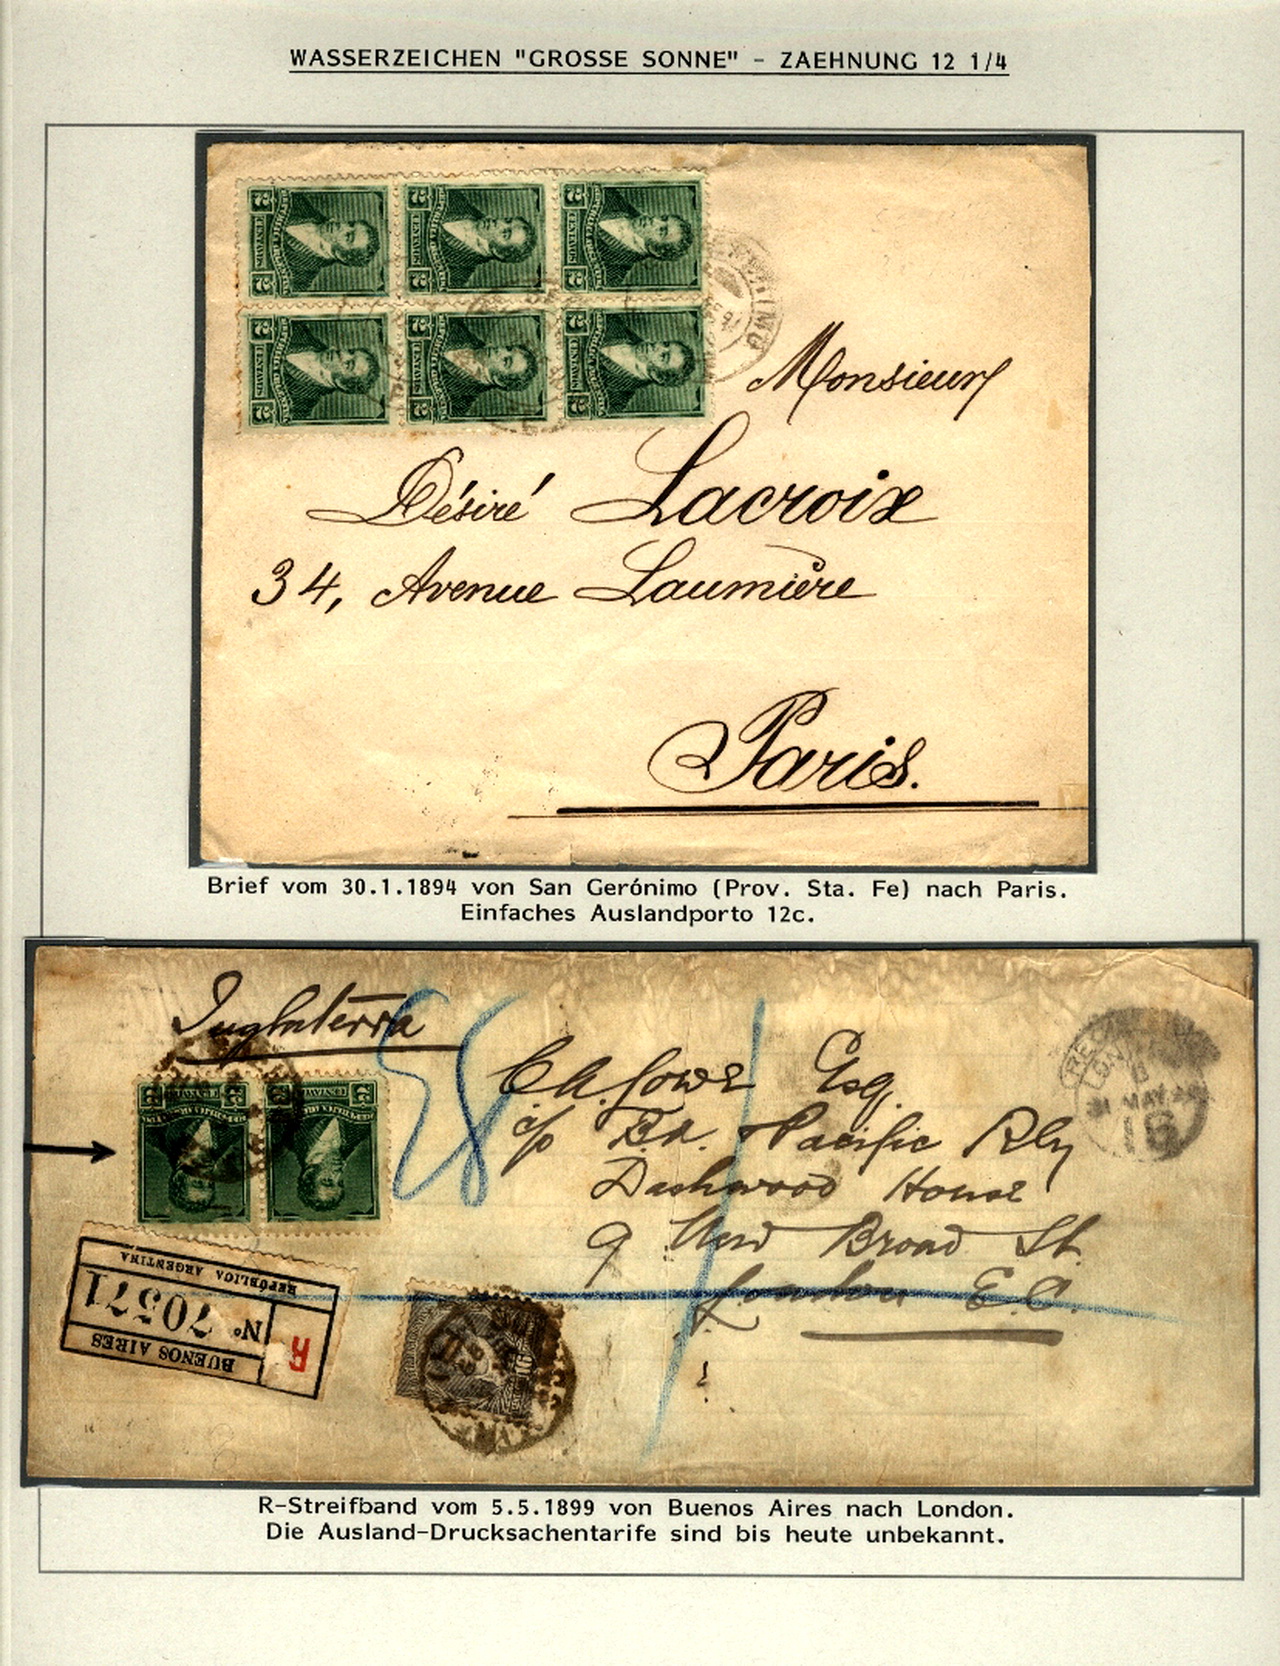 WASSERZEICHEN "GROSSE SONNE" - ZAEHNUNG 12 1/4
Monsieur
Désiré Lacroix
34, Avenue Laumière
Paris.
Brief vom 30.1.1894 von San Gerónimo (Prov. Sta. Fe) nach Paris.
Einfaches Auslandporto 12c.
Inglaterra
Esq.
c/o B.A. Pacific Rly
Dashwood House
9 New Broad St.
London E.C.
LONDON
MAY 99
REPÚBLICA ARGENTINA
R Nº 70571
BUENOS AIRES
R-Streifband vom 5.5.1899 von Buenos Aires nach London.
Die Ausland-Drucksachentarife sind bis heute unbekannt.